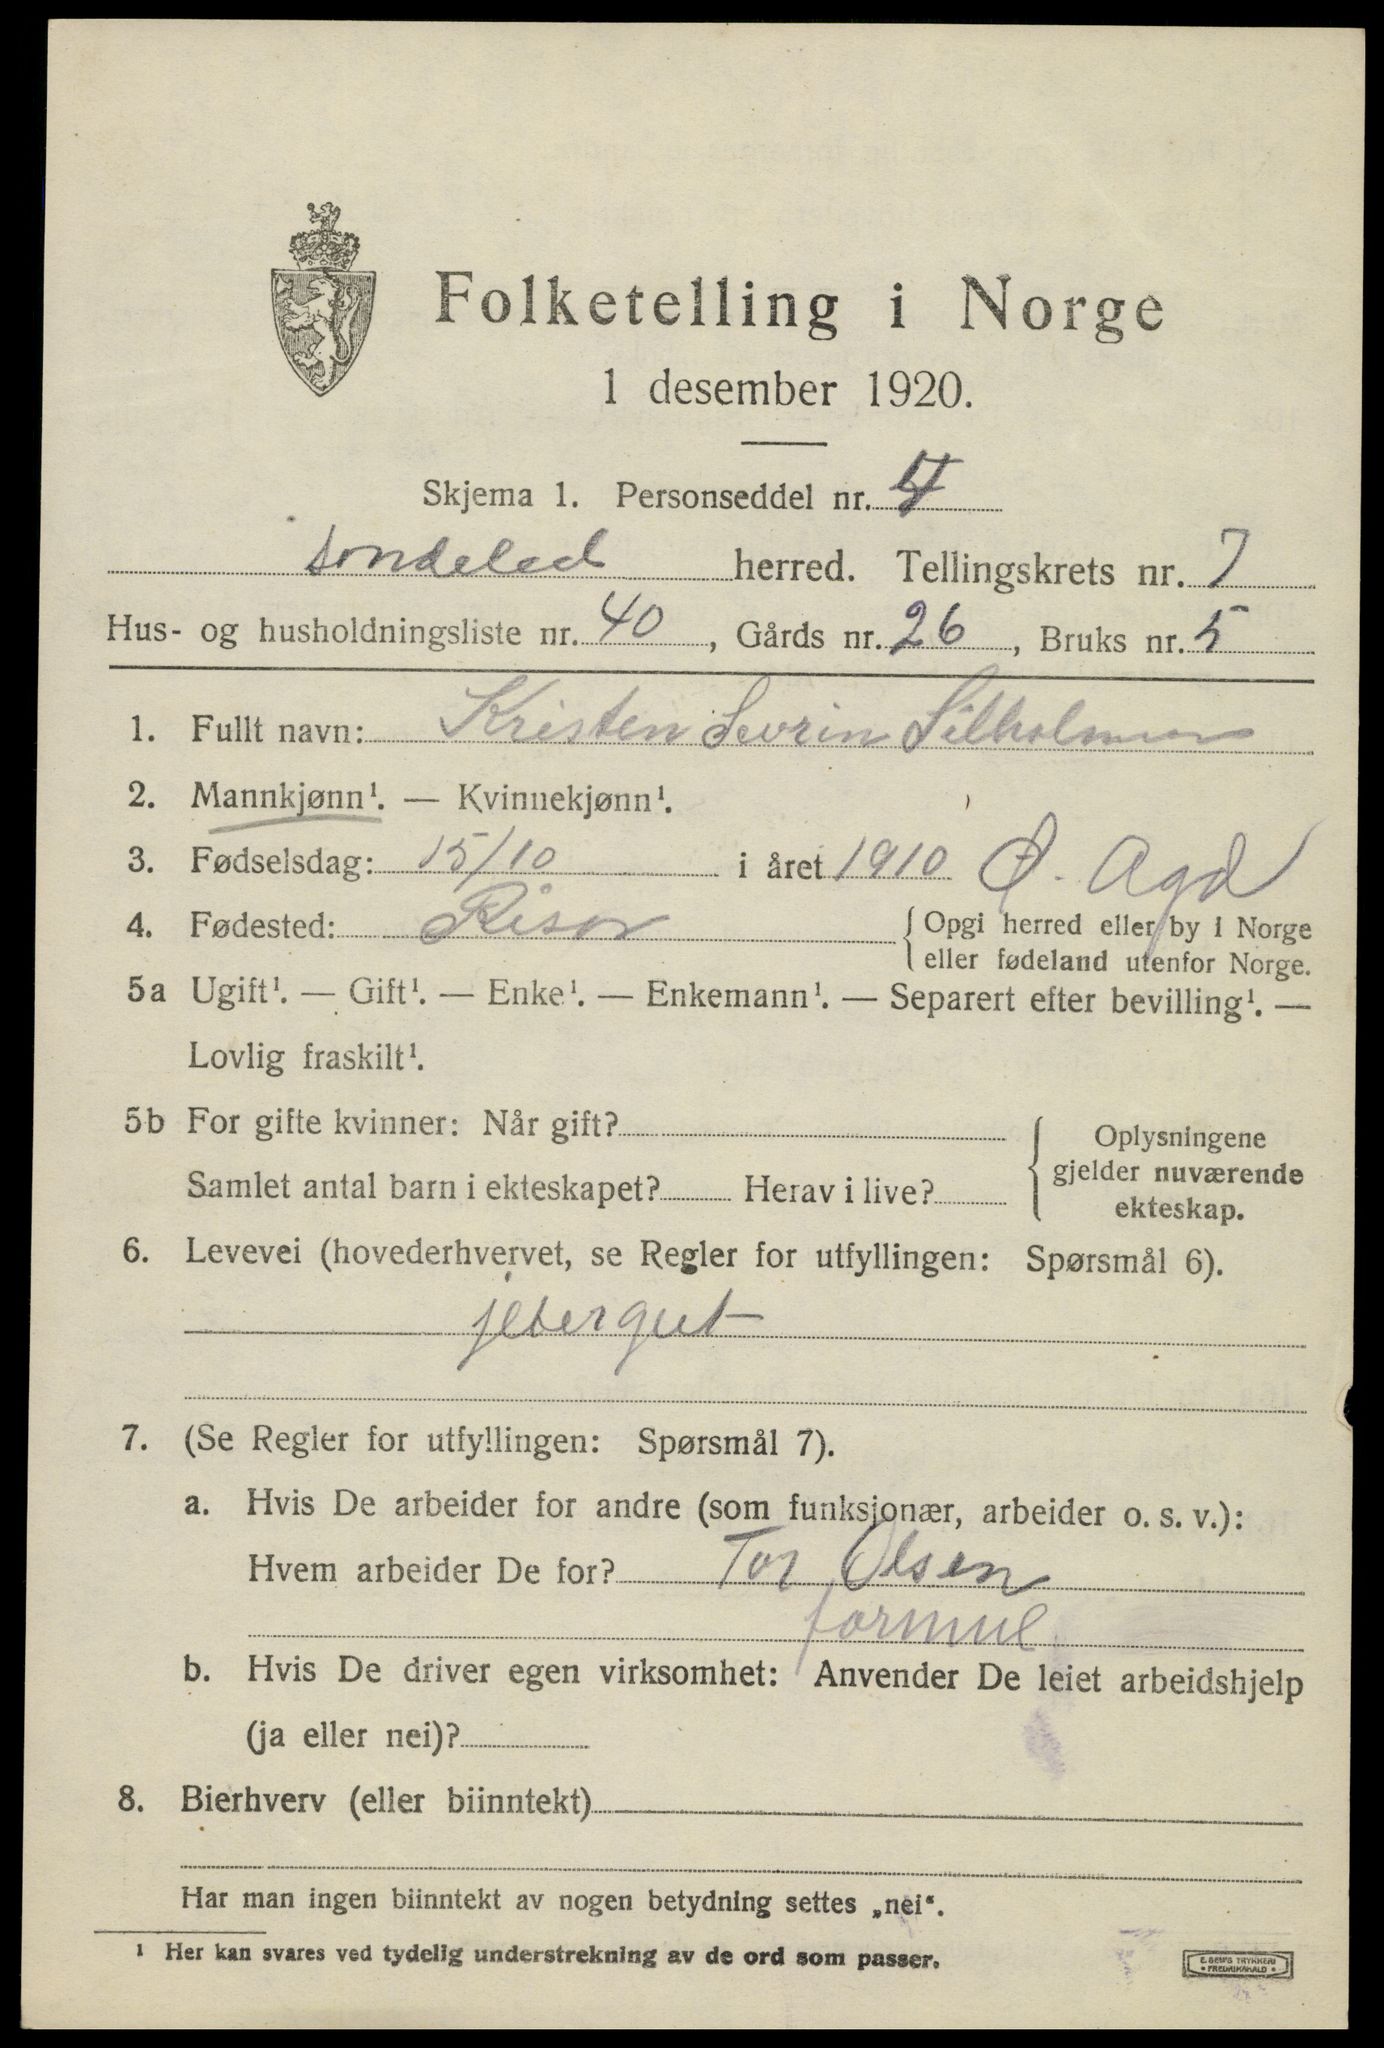 Folketelling i Norge
1 desember 1920.
Skjema 1. Personseddel nr. 4
Søndeled herred. Tellingskrets nr. 7
Hus- og husholdningsliste nr. 40, Gårds nr. 26, Bruks nr. 5
1. Fullt navn: Kristen Sevrin Silholmen
2. Mannkjønn¹. — Kvinnekjønn¹.
3. Fødselsdag: 15/10 i året 1910 Ø. Agd
4. Fødested: Risør { Opgi herred eller by i Norge
eller fødeland utenfor Norge.
5a Ugift¹. — Gift¹. — Enke¹. — Enkemann¹. — Separert efter bevilling¹. —
Lovlig fraskilt¹.
5b For gifte kvinner: Når gift?
Samlet antal barn i ekteskapet? Herav i live?
{ Oplysningene
gjelder nuværende
ekteskap.
6. Levevei (hovederhvervet, se Regler for utfyllingen: Spørsmål 6).
jetergut
7. (Se Regler for utfyllingen: Spørsmål 7).
a. Hvis De arbeider for andre (som funksjonær, arbeider o. s. v.):
Hvem arbeider De for? Tor Olsen
b. Hvis De driver egen virksomhet: Anvender De leiet arbeidshjelp
(ja eller nei)?
8. Bierhverv (eller biinntekt)
Har man ingen biinntekt av nogen betydning settes „nei“.
¹ Her kan svares ved tydelig understrekning av de ord som passer.
E. SEM'S TRYKKERI
• FREDRIKSHALD •